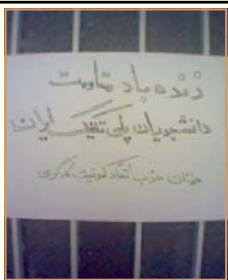 زنده باد مقاومت
دانشجویان پلی تکنیک ایران
حزب اتحاد کمونیسم کارگری